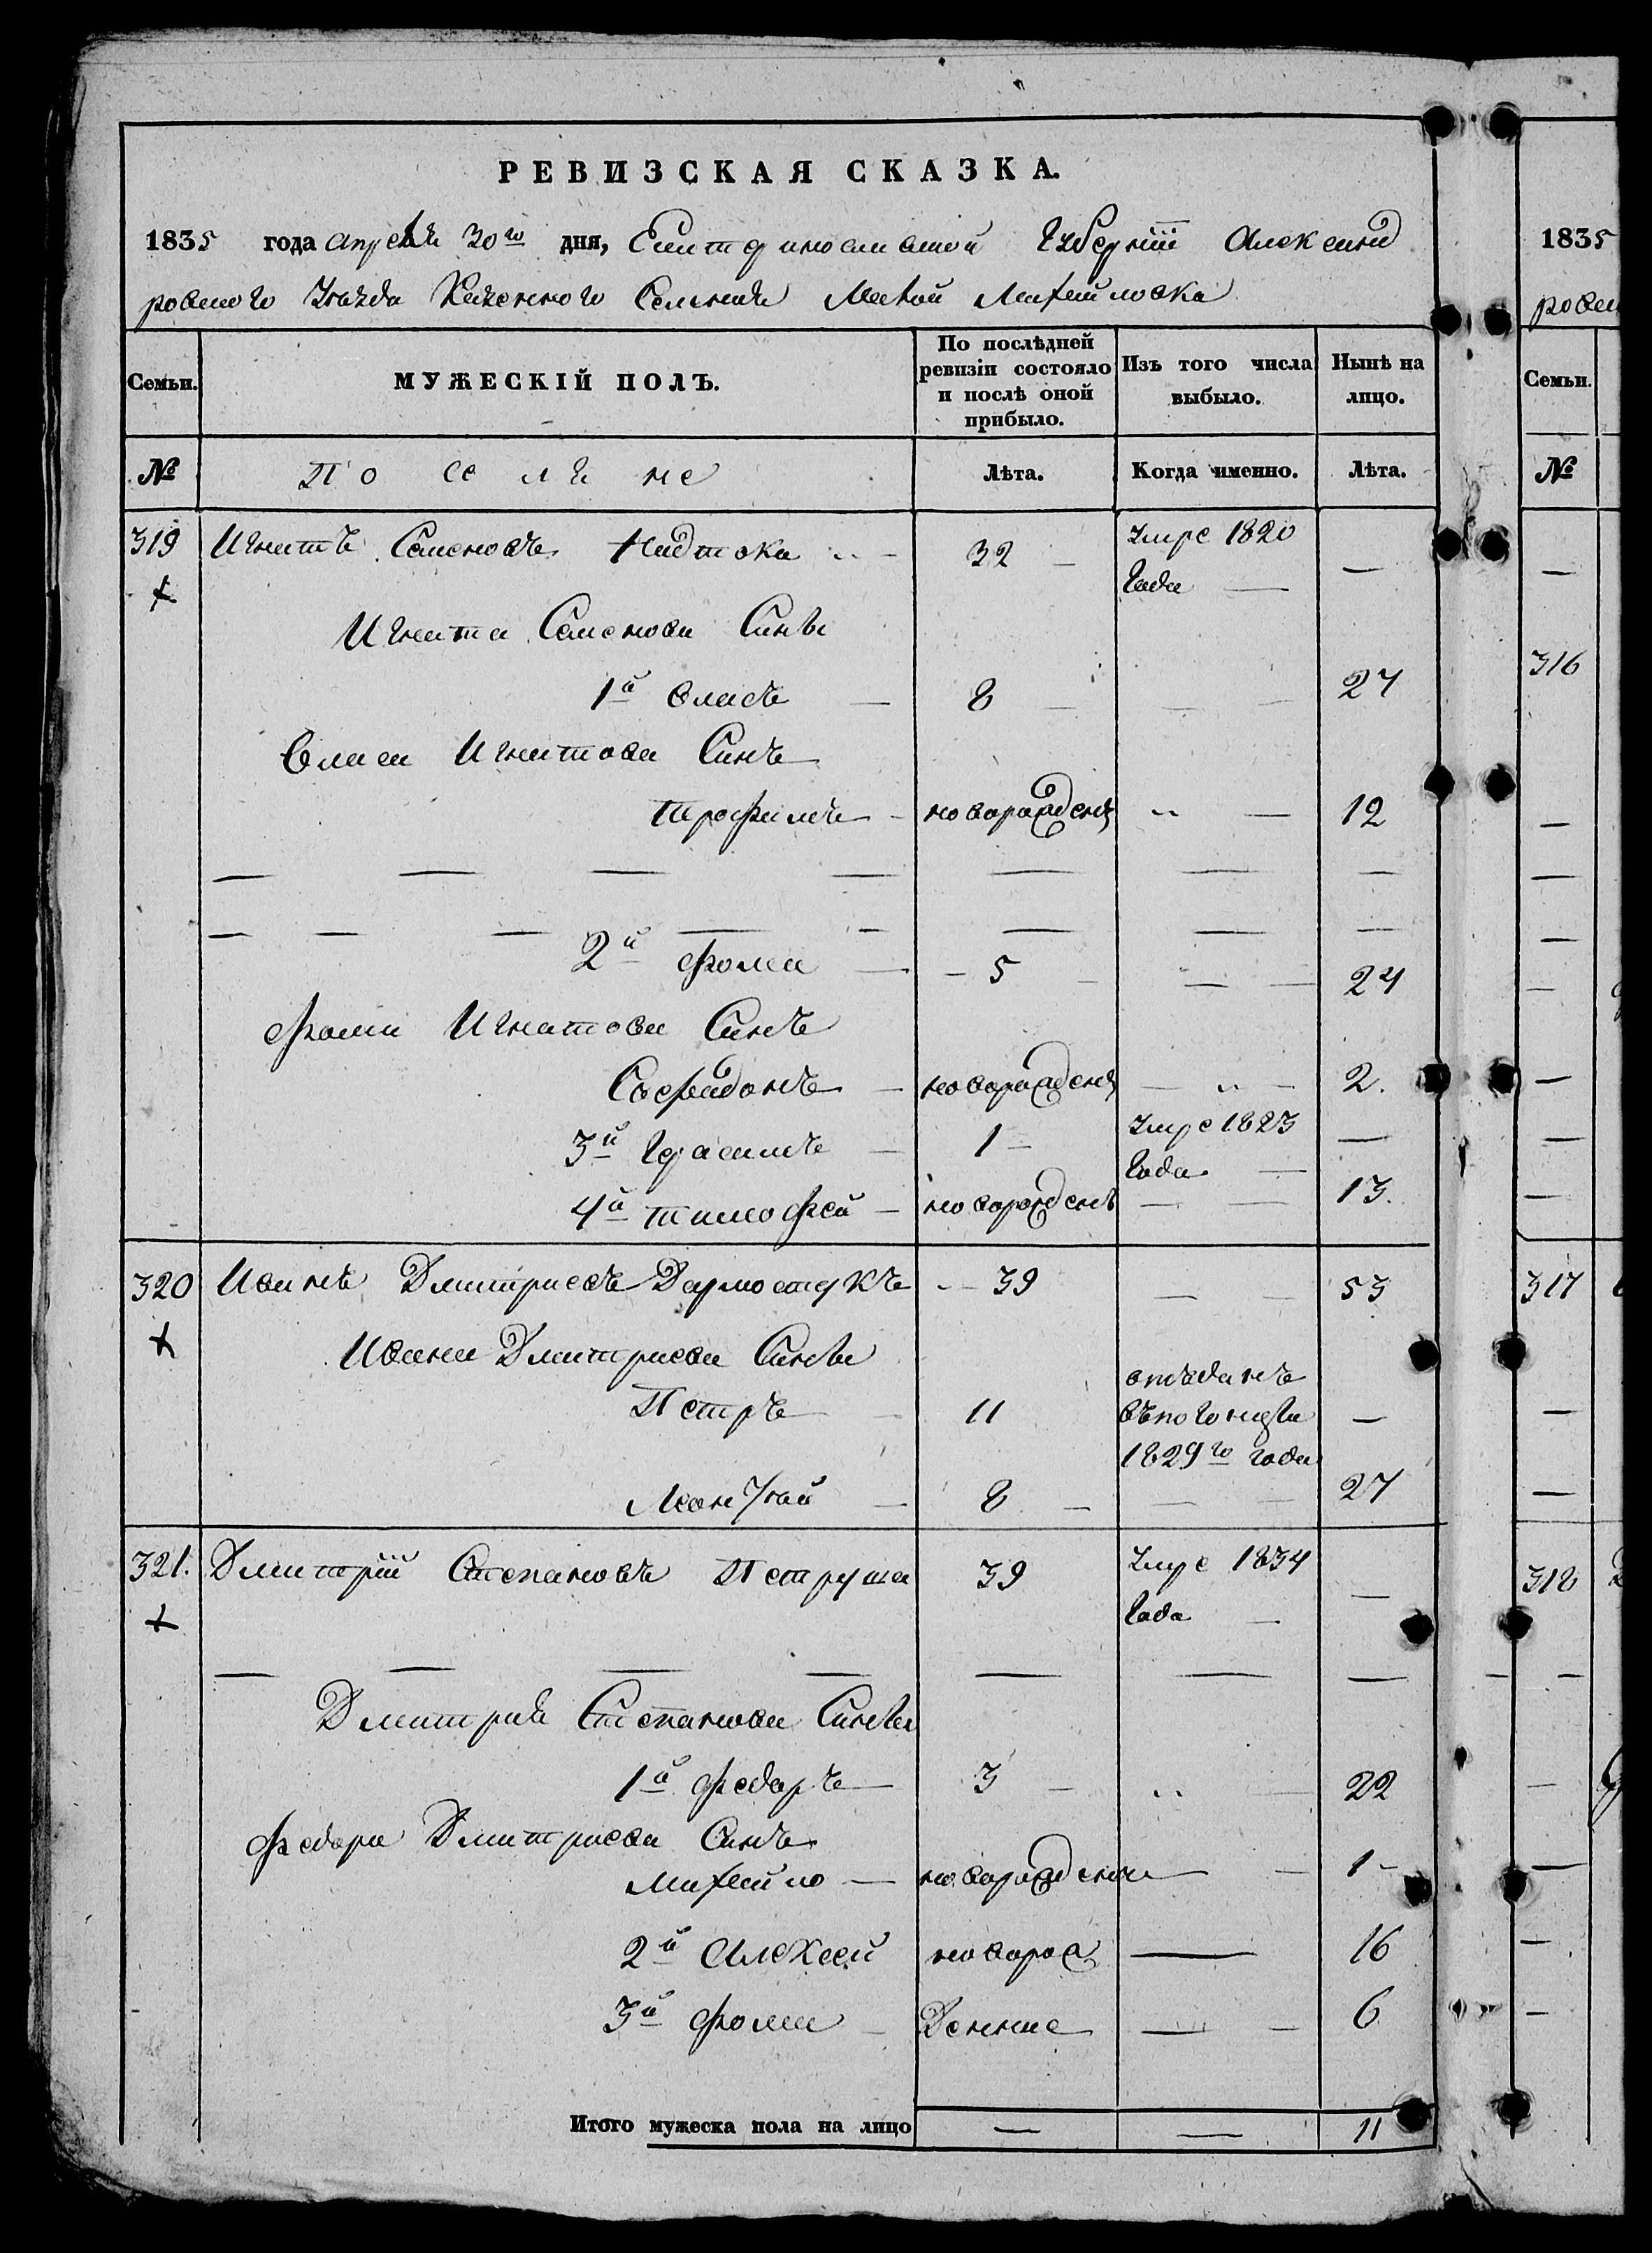 РЕВИЗСКАЯ СКАЗКА.
1835 года апреля 30го дня, Екатеринославской Губернiи Александ
ровского Уезда Казенного Селения Малой Михайловка
Семьи. МУЖЕСКІЙ ПОЛЪ. По послѣдней ревизіи состояло и послѣ оной прибыло. Изъ того числа выбыло. Нынѣ на лицо.
№ Поселяне Лѣта. Когда именно. Лѣта.
319 Игнатъ Семеновъ Надтока 32 — умре 1820 года — —
Игната Семенова Сины
1й Власъ — 8 — — — 27
Власа Игнатова Синъ
Трофимъ — новарожденъ — 12
2й Фома — 5 — — — 24
Фоми Игнатова Синъ
Сосфидонъ — новарожденъ — — 2.
3й Герасимъ — 1 — умре 1823 года — —
4й Тимофей — новарожденъ — — 13.
320 Иванъ Дмитриевъ Дармостукъ 39 — — 53
Ивана Дмитриева Сины
Петръ — 11 отъданъ въпогонцы 1829го года —
Мокѣй — 8 — — — 27
321. Дмитрiй Степановъ Петруша 39 умре 1834 года — —
Дмитрия Степанова Сины
1й Федаръ — 3 — — 22
Федора Дмитриева Синъ
Михайло — новарожденъ — — 1 —
2й Алексей новарож — 16
3й Фома — Денние — — 6
Итого мужеска пола на лицо — — 11
1835
ровск
Семьи.
№
316
317
318